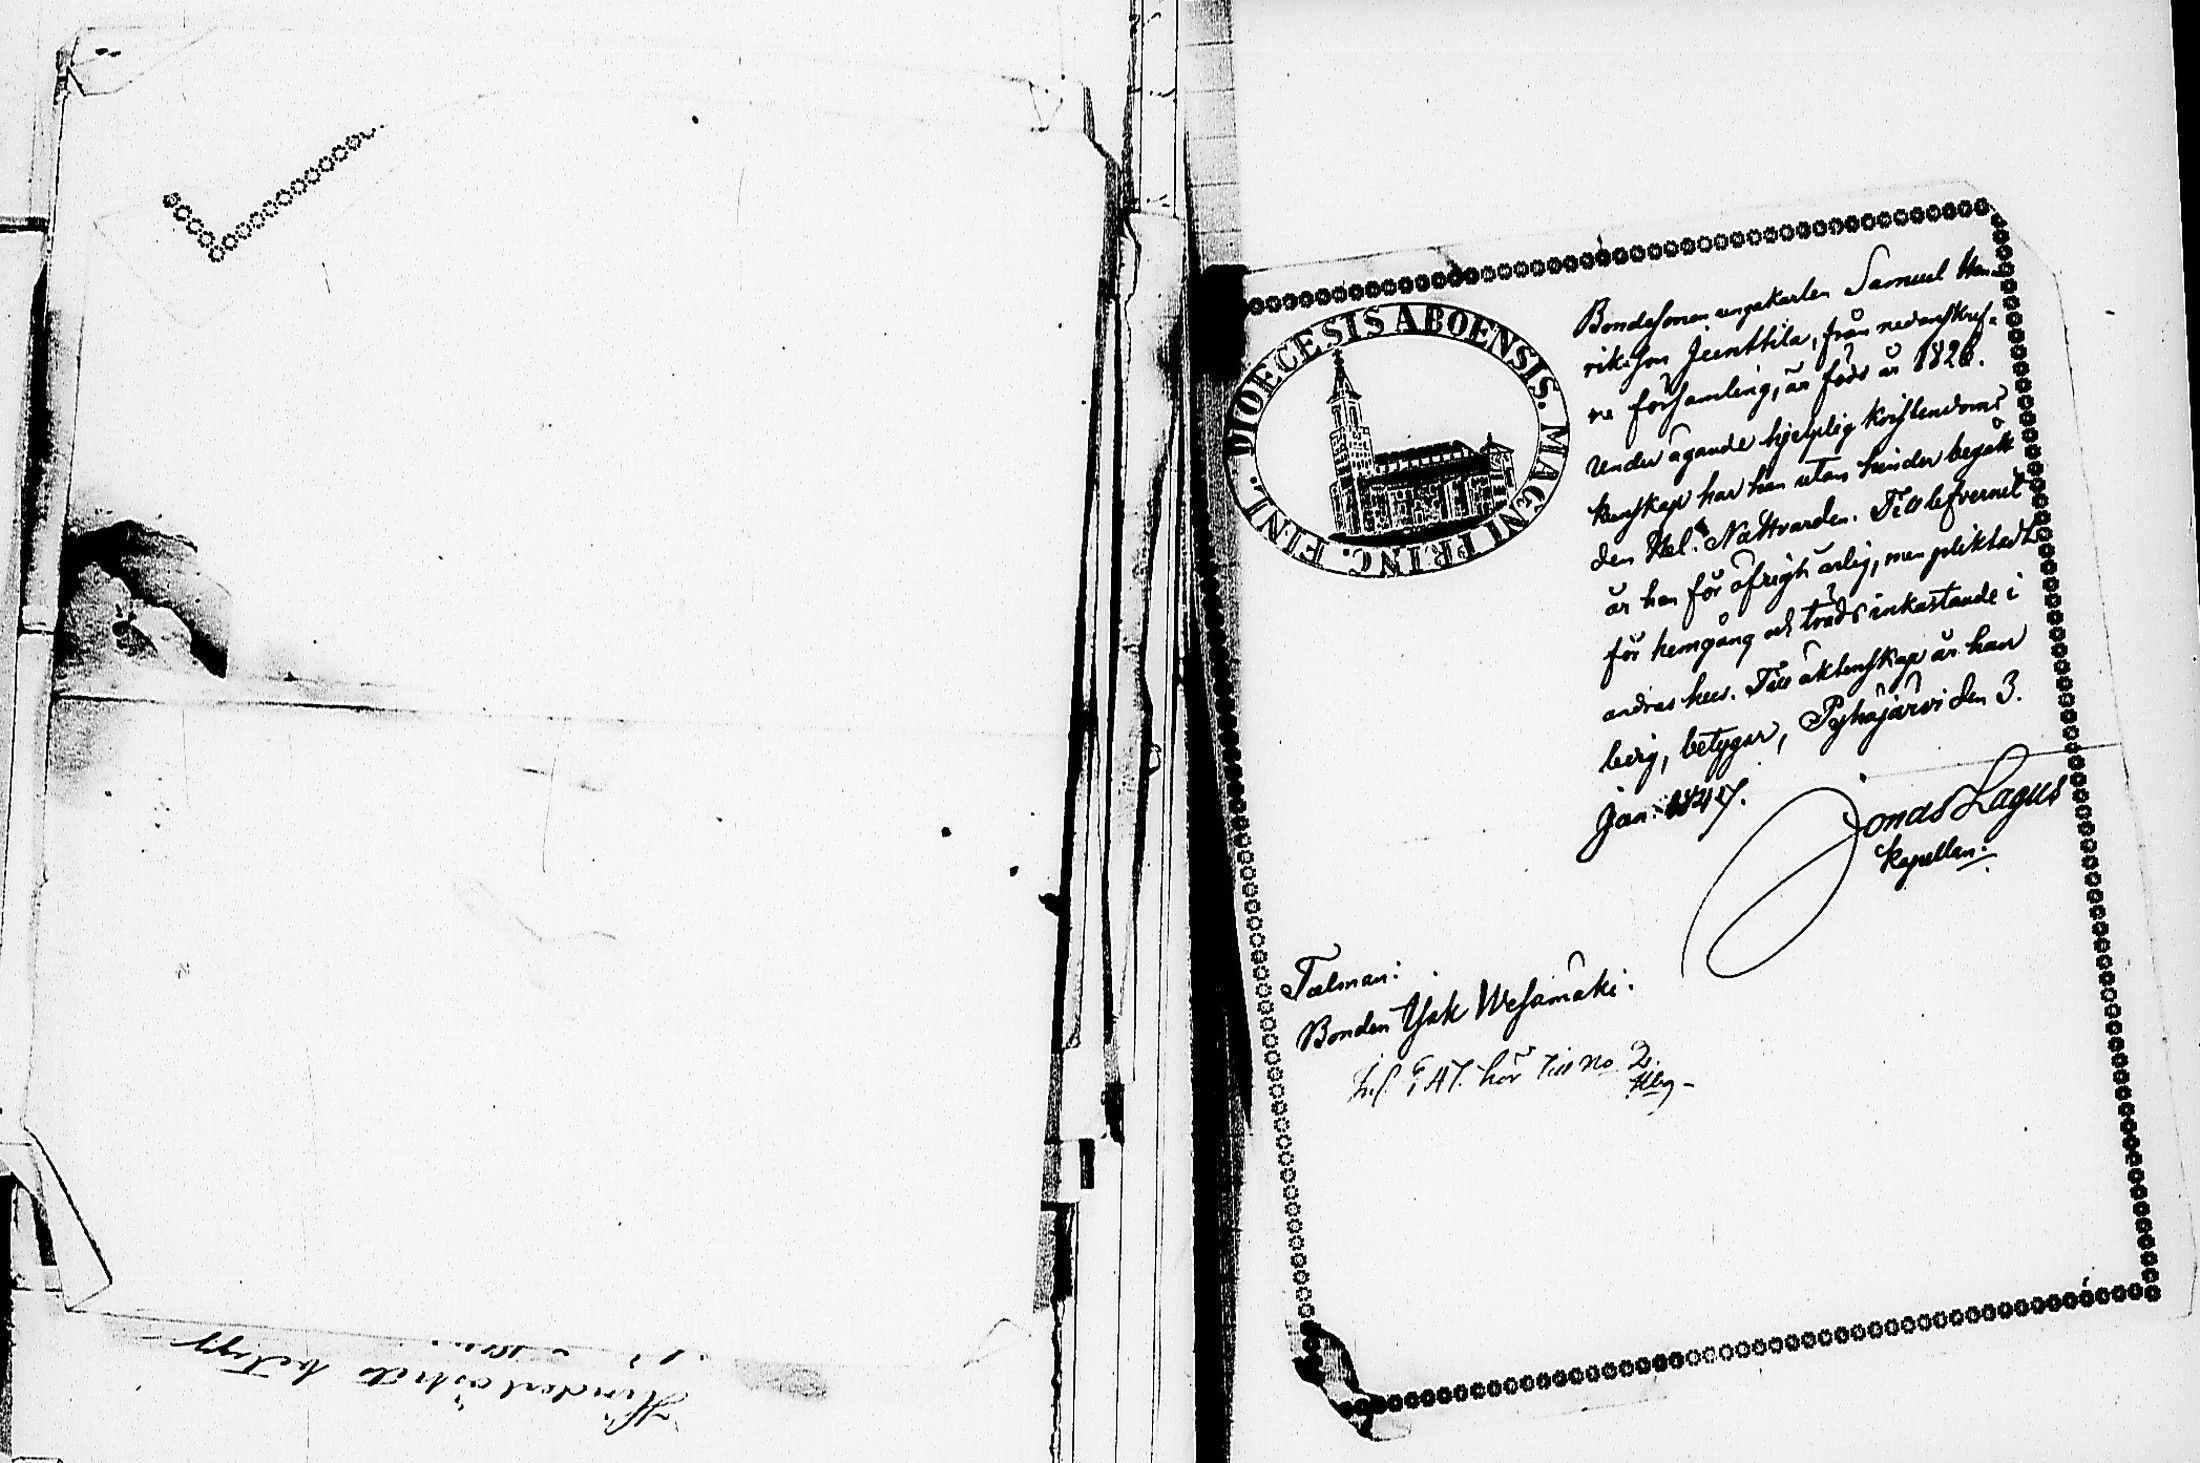 DIOECESIS ABOENSIS. MAGNI PRINC. FINL.
Bondesonen ungekarlen Samuel Hen-
riksson Junttila, från nedanskref-
ne församling, är född år 1826.
Under ägande hjelplig kristendoms
kunskap har han utan hinder begått
den Hel. Nattvarden. Till lefvernet
är han för öfrigt ärlig, men pliktad
för hemgång och träds inkastande i
andras hus. Till äktenskap är han
ledig, betygar, Pyhäjärvi den 3.
Jan: 1847.
Jonas Lagus
Kapellan.
Talman:
Bonden Isak Wesamäki.
hör till no 2.
Hinderlöshets betyg